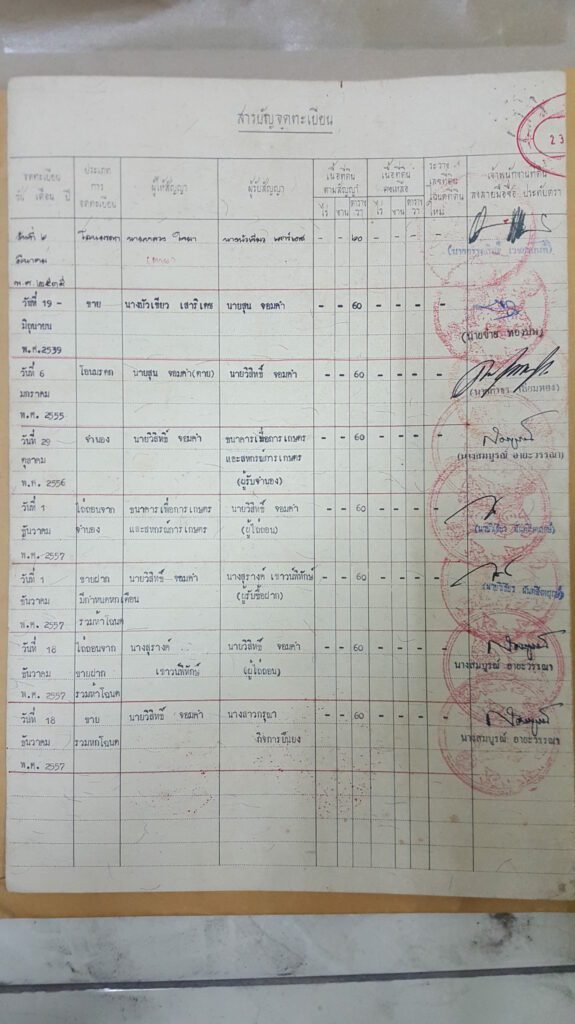 สารบัญจดทะเบียน
23
จดทะเบียน
วัน เดือน ปี
ประเภท
การ
จดทะเบียน
ผู้ให้สัญญา
ผู้รับสัญญา
เนื้อที่ดิน
ตามสัญญา
ไร่ งาน ตาราง วา
เนื้อที่ดิน
คงเหลือ
ไร่ งาน ตาราง วา
ระวาง
เลขที่ดิน
โฉนดที่ดิน
ใหม่
เจ้าพนักงานที่ดิน
ลงลายมือชื่อ ประทับตรา
มีนาคม
(ตาย)
- - ๖๐ - - - -
วันที่ 19 ขาย นางบัวเขียว เสาร์เดช นายสุน จอมคำ - - 60 - - - -
มิถุนายน
พ.ศ.2539
วันที่ 6 โอนมรดก นายสุน จอมคำ(ตาย) นายวิสิทธิ์ จอมคำ - - 60 - - - -
มกราคม
พ.ศ. 2555
วันที่ 29 จำนอง นายวิสิทธิ์ จอมคำ ธนาคารเพื่อการเกษตร - - 60 - - - -
ตุลาคม และสหกรณ์การเกษตร
พ.ศ. 2556 (ผู้รับจำนอง)
(นางสมบูรณ์ อายะวรรณา)
วันที่ 1 ไถ่ถอนจาก ธนาคารเพื่อการเกษตร นายวิสิทธิ์ จอมคำ - - 60 - - - -
ธันวาคม จำนอง และสหกรณ์การเกษตร (ผู้ไถ่ถอน)
พ.ศ. 2557
วันที่ 1 ขายฝาก นายวิสิทธิ์ จอมคำ นางสุรางค์ เชาวน์พิทักษ์ - - 60 - - - -
ธันวาคม มีกำหนดหกเดือน (ผู้รับซื้อฝาก)
พ.ศ. 2557 รวมห้าโฉนด
วันที่ 18 ไถ่ถอนจาก นางสุรางค์ นายวิสิทธิ์ จอมคำ - - 60 - - - -
ธันวาคม ขายฝาก เชาวน์พิทักษ์ (ผู้ไถ่ถอน)
นางสมบูรณ์ อายะวรรณา
พ.ศ. 2557 รวมห้าโฉนด
วันที่ 18 ขาย นายวิสิทธิ์ จอมคำ นางสาวกรุณา - - 60 - - - -
ธันวาคม รวมหกโฉนด
นางสมบูรณ์ อายะวรรณา
พ.ศ. 2557